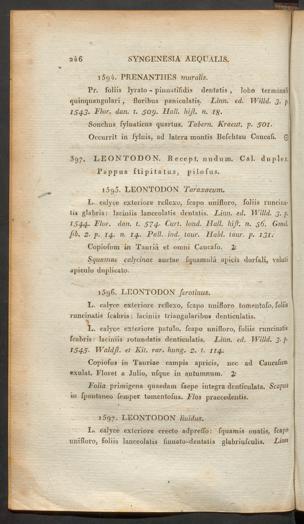 246 SYNGENESIA AEQUALIS.
1594. PRENANTHES muralis.
Pr. foliis lyrato-pinnatifidis dentatis, lobo terminali
quinquangulari, floribus paniculatis. Linn. ed. Willd. 3. p.
1543. Flor. dan. t. 509. Hall. hist. n. 18.
Sonchus sylvaticus quartus. Tabern. Kraeut. p. 501.
Occurrit in sylvis, ad latera montis Beschtau Caucasi. ☉
397. LEONTODON. Recept. nudum. Cal. duplex
Pappus stipitatus, pilosus.
1595. LEONTODON Taraxacum.
L. calyce exteriore reflexo, scapo unifloro, foliis runcina-
tis glabris: laciniis lanceolatis dentatis. Linn. ed. Willd. 3. p.
1544. Flor. dan. t. 574. Curt. lond. Hall. hist. n. 56. Gmel.
sib. 2. p. 14. n. 14. Pall. ind. taur. Habl. taur. p. 131.
Copiosum in Tauria et omni Caucaso. ♃
Squamae calycinae auctae squamulâ apicis dorsali, veluti
apiculo duplicato.
1596. LEONTODON serotinus.
L. calyce exteriore reflexo, scapo unifloro tomentoso, foliis
runcinatis scabris: laciniis triangularibus denticulatis.
L. calyce exteriore patulo, scapo unifloro, foliis runcinatis
scabris: laciniis rotundatis denticulatis. Linn. ed. Willd. 3. p.
1545. Waldst. et Kit. rar. hung. 2. t. 114.
Copiosus in Tauriae campis apricis, nec ad Caucasum
exulat. Floret a Julio, usque in autumnum. ♃
Folia primigena quaedam saepe integra denticulata. Scapus
in spontaneo semper tomentosus. Flos praecedentis.
1597. LEONTODON lividus.
L. calyce exteriore erecto adpresso: squamis ovatis, scapo
unifloro, foliis lanceolatis sinuato-dentatis glabriusculis. Linn